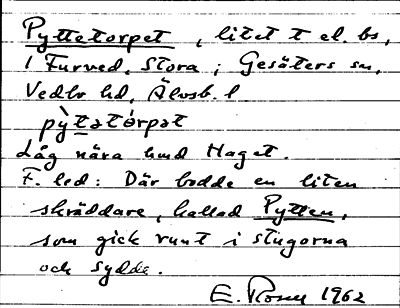 Pyttetorpet, litet t el. bs,
i Furved, Stora ; Gesäters sn,
Vedbo hd, Älvsb. l
pỳtətórpət
Låg nära hmd Haget.
F. led: Där bodde en liten
skräddare, kallad Pytten,
som gick runt i stugorna
och sydde.
E. 1962